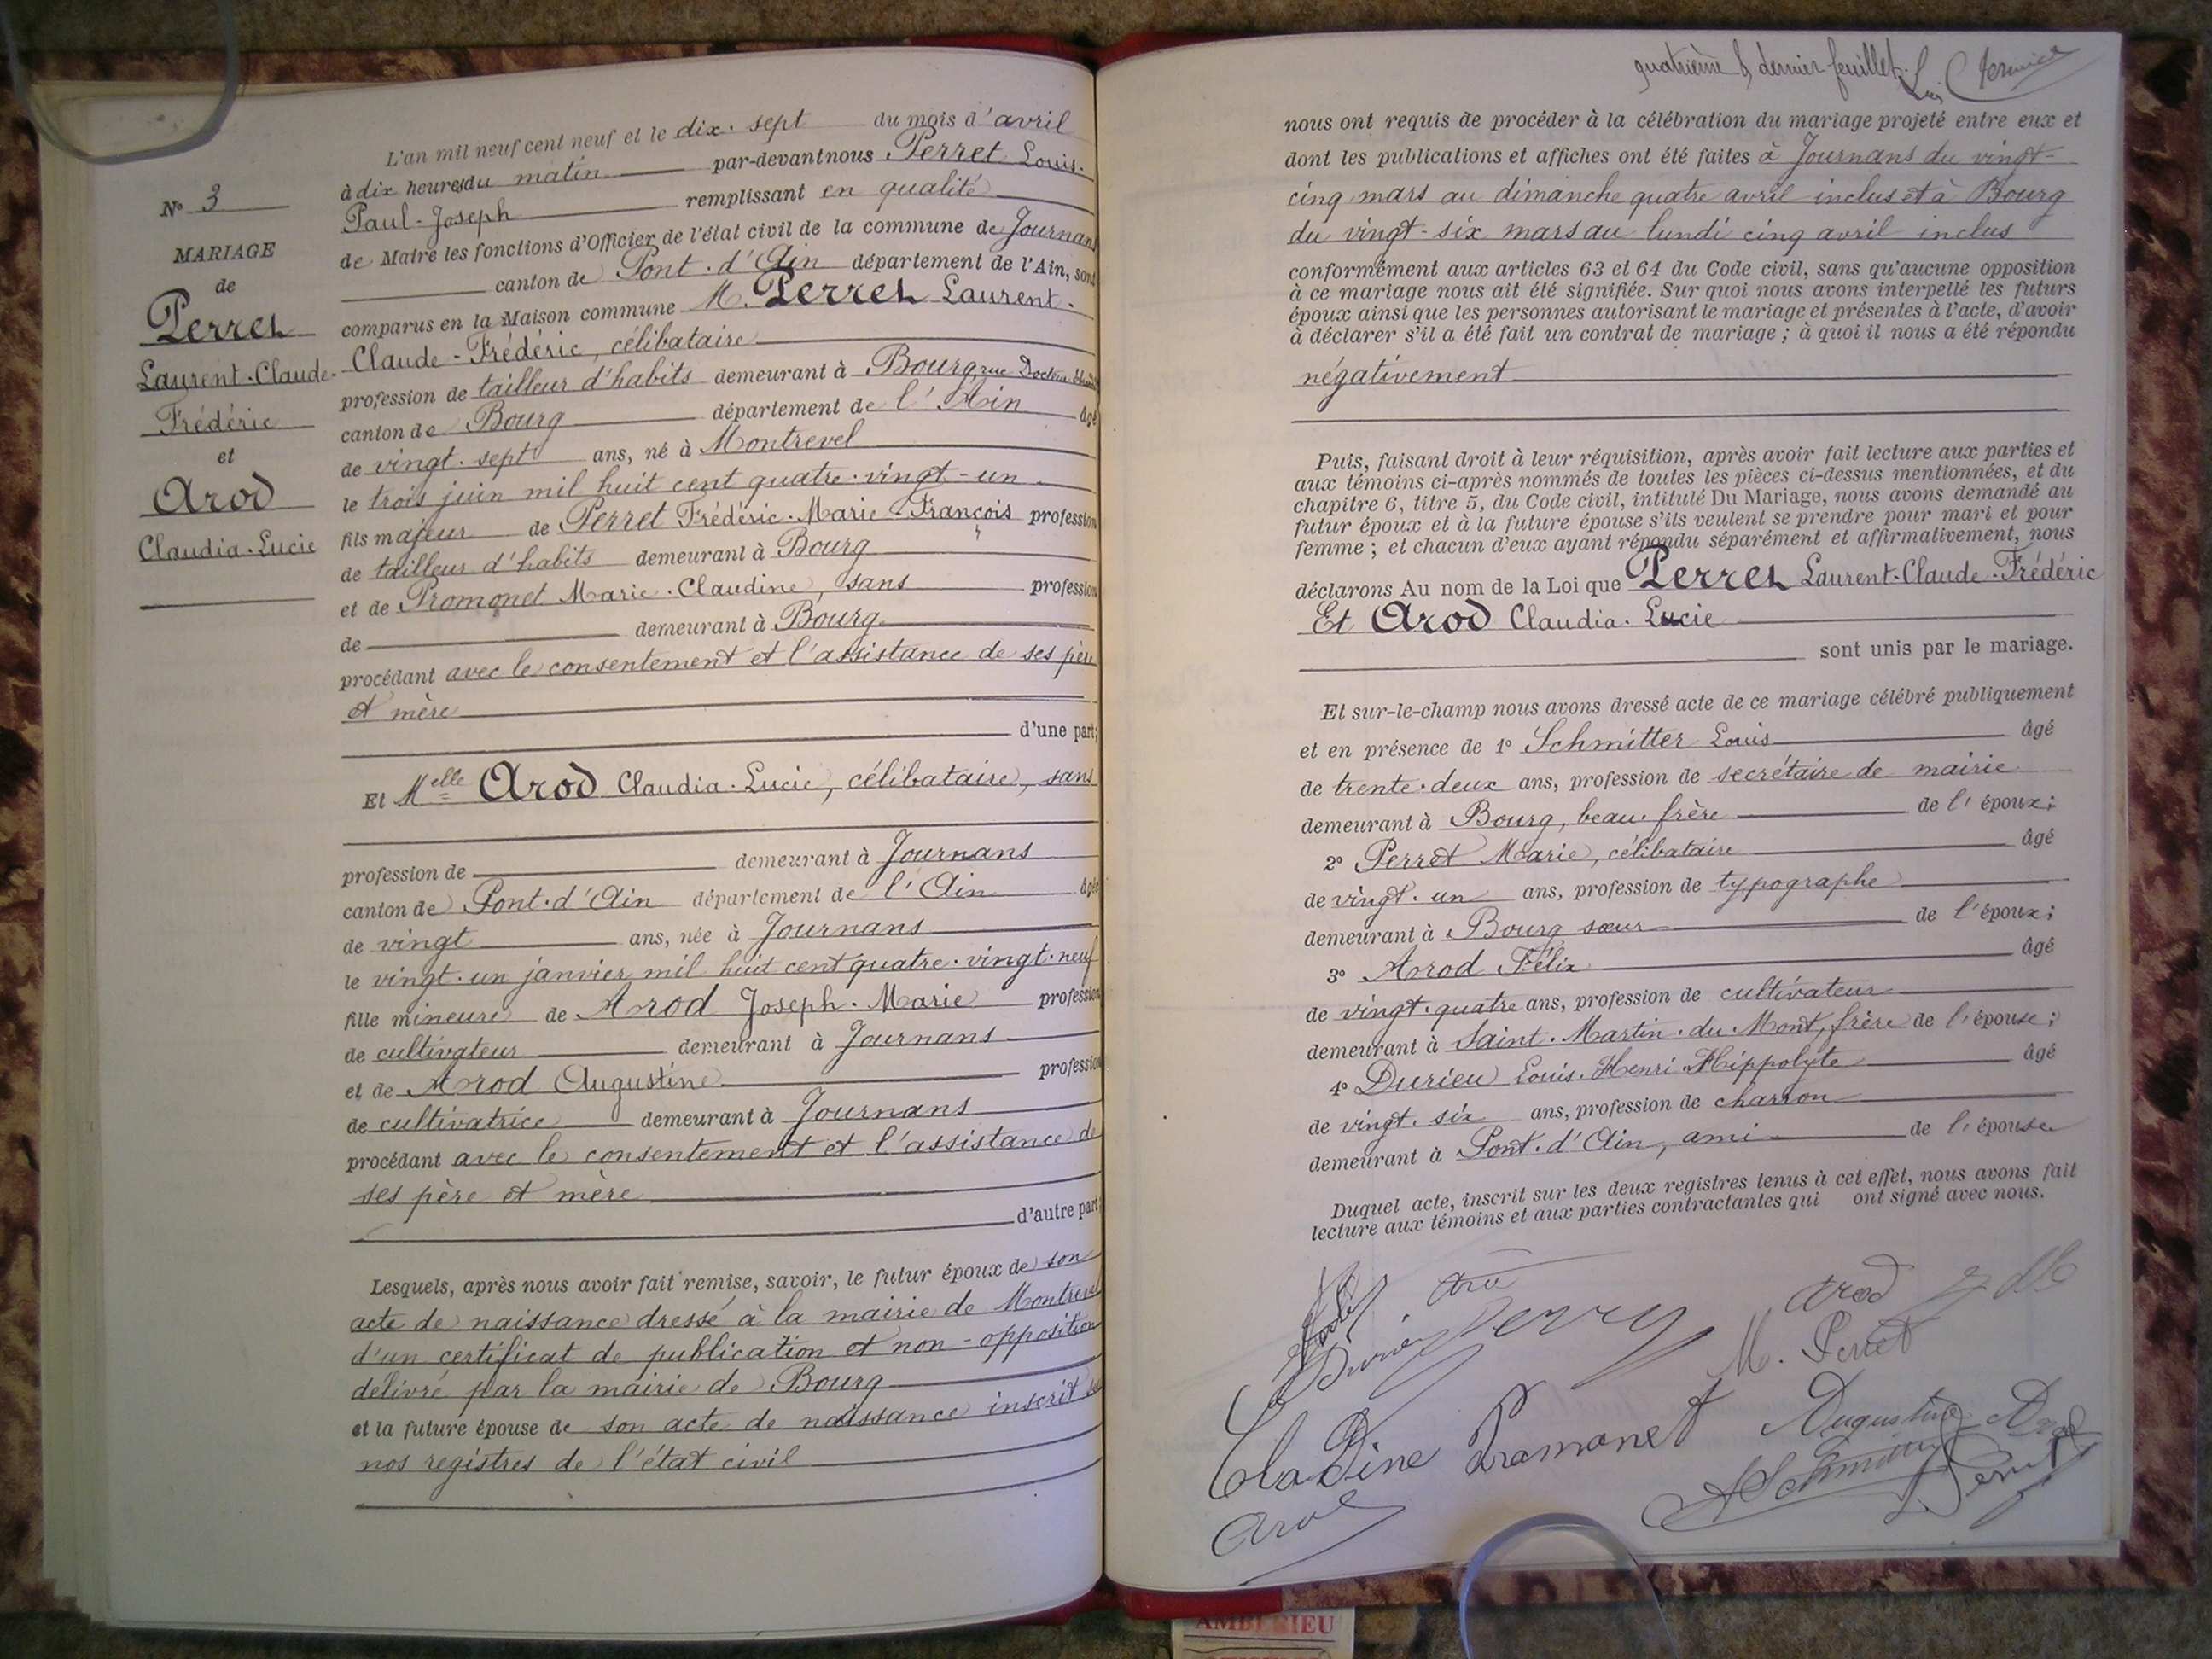 N° 3
MARIAGE
de
Perret
Laurent-Claude-
Frédéric
et
Arod
Claudia-Lucie
L'an mil neuf cent neuf et le dix-sept du mois d'avril
à dix heures du matin par-devant nous Perret Louis-
Paul-Joseph remplissant en qualité
de Maire les fonctions d'Officier de l'état civil de la commune de Journans
canton de Pont-d'Ain département de l'Ain, sont
comparus en la Maison commune M. Perret Laurent-
Claude-Frédéric, célibataire
profession de tailleur d'habits demeurant à Bourg, rue Docteur
canton de Bourg département de l'Ain âgé
de vingt-sept ans, né à Montrevel
le trois juin mil huit cent quatre-vingt-un
fils majeur de Perret Frédéric-Marie-François profession
de tailleur d'habits demeurant à Bourg
et de Promonet Marie-Claudine, sans profession
de demeurant à Bourg
procédant avec le consentement et l'assistance de ses père
et mère
d'une part;
Et Melle Arod Claudia-Lucie, célibataire, sans
profession de demeurant à Journans
canton de Pont-d'Ain département de l'Ain âgée
de vingt ans, née à Journans
le vingt-un janvier mil huit cent quatre-vingt-neuf
fille mineure de Arod Joseph-Marie profession
de cultivateur demeurant à Journans
et de Arod Augustine profession
de cultivatrice demeurant à Journans
procédant avec le consentement et l'assistance de
ses père et mère
d'autre part
Lesquels, après nous avoir fait remise, savoir, le futur époux de son
acte de naissance dressé à la mairie de Montrevel
d'un certificat de publication et non-opposition
délivré par la mairie de Bourg
et la future épouse de son acte de naissance inscrit
nos registres de l'état civil
quatrième & dernier feuillet
nous ont requis de procéder à la célébration du mariage projeté entre eux et
dont les publications et affiches ont été faites à Journans du vingt-
cinq mars au dimanche quatre avril inclus et à Bourg
du vingt-six mars au lundi cinq avril inclus
conformément aux articles 63 et 64 du Code civil, sans qu'aucune opposition
à ce mariage nous ait été signifiée. Sur quoi nous avons interpellé les futurs
époux ainsi que les personnes autorisant le mariage et présentes à l'acte, d'avoir
à déclarer s'il a été fait un contrat de mariage; à quoi il nous a été répondu
négativement
Puis, faisant droit à leur réquisition, après avoir fait lecture aux parties et
aux témoins ci-après nommés de toutes les pièces ci-dessus mentionnées, et du
chapitre 6, titre 5, du Code civil, intitulé Du Mariage, nous avons demandé au
futur époux et à la future épouse s'ils veulent se prendre pour mari et pour
femme; et chacun d'eux ayant répondu séparément et affirmativement, nous
déclarons Au nom de la Loi que Perret Laurent-Claude-Frédéric
Et Arod Claudia-Lucie
sont unis par le mariage.
Et sur-le-champ nous avons dressé acte de ce mariage célébré publiquement
et en présence de 1° Schmitter Louis âgé
de trente-deux ans, profession de secrétaire de mairie
demeurant à Bourg, beau-frère de l'époux;
2° Perret Marie, célibataire âgé
de vingt-un ans, profession de typographe
demeurant à Bourg sœur de l'époux;
3° Arod Félix âgé
de vingt-quatre ans, profession de cultivateur
demeurant à Saint-Martin-du-Mont, frère de l'épouse;
4° Durieu Louis-Henri-Hippolyte âgé
de vingt-six ans, profession de charron
demeurant à Pont-d'Ain, ami de l'épouse
Duquel acte, inscrit sur les deux registres tenus à cet effet, nous avons fait
lecture aux témoins et aux parties contractantes qui ont signé avec nous.
Arod
Durieu Perret
M. Perret
Cladine Pramonet
Augustine Arod
Schmitter
Perret
Arod
AMBERIEU